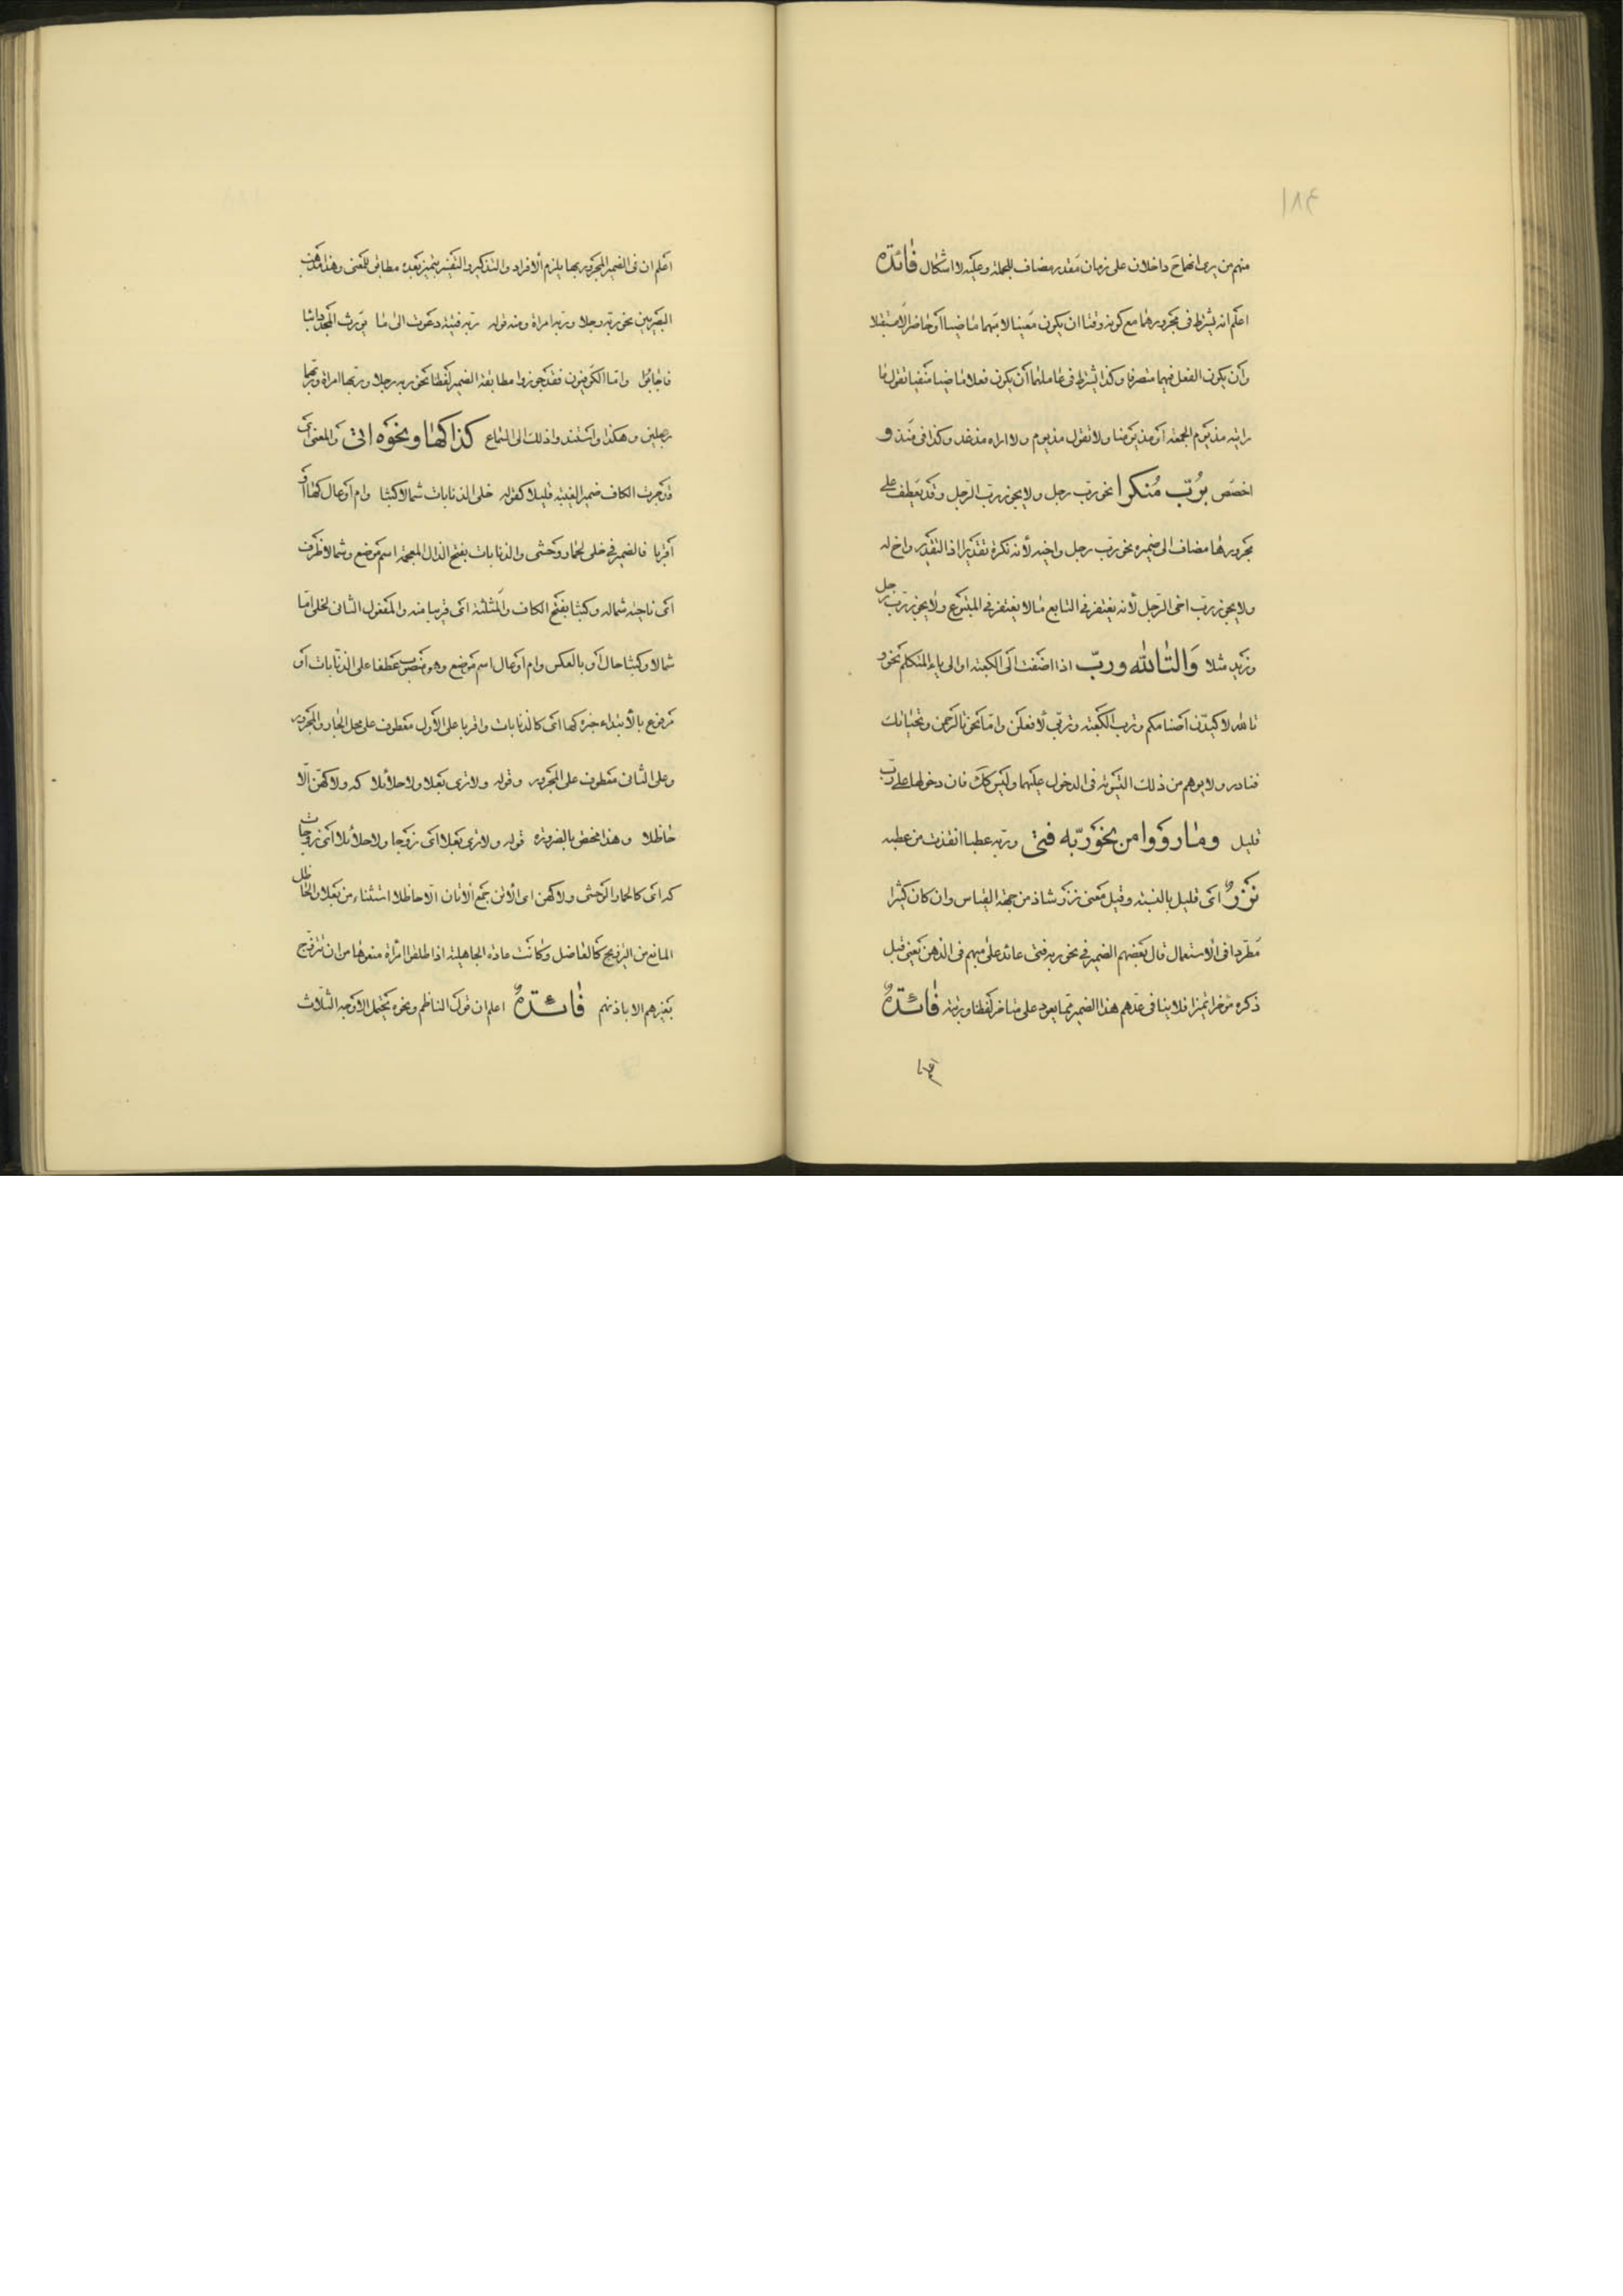 ١٨٤
منهم من يرى انهما ح داخلان على زمان مقدر مضاف للجملة وعليه لا اشكال فائدة
اعلم انه يشترط فى مجرورهما مع كونه وقتا ان يكون معينا لا مبهما ماضيا او حاضرا لا مستقبلا
وان يكون الفعل فيهما متصرفا وكذا يشترط فى عاملهما ان يكون فعلا ماضيا منفيا تقول ما
رايته مذ يوم الجمعة او مذ يومنا ولا تقول مذ يوم ولا اراه مذ غد وكذا فى منذ و
اخصص برُبّ مُنكرا نحو رب رجل ولا يجوز رب الرجل وقد يعطف على
مجرورها مضاف الى ضميره نحو رب رجل واخيه لأنه نكرة تقديرا اذ التقدير واخ له
ولا يجوز رب اخى الرجل لأنه يغتفر فى التابع ما لا يغتفر فى المتبوع ولا يجوز رب رجل
وزيد مثلا وَالتا لله وربّ اذا اضفت الى الكعبة او الى ياء المتكلم نحو و
تالله لاكيدن اصنامكم وترب الكعبة وتربى لأفعلن واما نحو تالرحمن وتحياتك
فنادر ولا يوهم من ذلك التسوية فى الدخول عليهما وليس كك فان دخولها على رب
قليل وما رووا من نحو ربّه فتى وربه عطبا انقذت من عطبه
نزرٌ اى قليل بالنسبة وقيل معنى نزر شاذ من جهة القياس وان كان كثيرا
مطردا فى الاستعمال قال بعضهم الضمير فى نحو ربه فتى عائد على مبهم فى الذهن يعنى قبل
ذكره مؤخرا تميزا فلا ينافى عدهم هذا الضمير مما يعود على متاخر لفظا ورتبة فائدةٌ
اعلم
اعلم ان فى الضمير المجرور بها يلزم الافراد والتذكير والتفسير بتميز بعده مطابق للمعنى وهذا مذهب
البصريين نحو ربه رجلا وربه امراة ومنه قوله ربه فتية دعوت الى ما يورث المجد دائبا
فاجابوا واما الكوفيون فقد جوزوا مطابقة الضمير لفظا نحو ربه رجلا وربها امراة وربهما
رجلين وهكذا واستندوا ذلك الى السماع كذا كها ونحوه اتى والمعنى اى
قد جرت الكاف ضمير الغيبة قليلا كقوله خلى الذنابات شمالا كثبا وام اوعال كها او
اقربا فالضمير فى خلى لحمار وحشى والذنابات بفتح الذال المعجمة اسم موضع وشمالا ظرف
اى ناحية شماله وكثبا بفتح الكاف والمثلثة اى قريبا منه والمفعول الثانى لخلى اما
شمالا وكثبا حال او بالعكس وام اوعال اسم موضع وهو منصوب عطفا على الذنابات او
مرفوع بالابتداء خبره كها اى كالذنابات واقربا على الأول معطوف على محل الجار والمجرور
وعلى الثانى معطوف على المجرور وقوله ولا ترى بعلا ولا حلائلا كه ولا كهن الا
حاظلا وهذا مختص بالضرورة قوله ولا ترى بعلا اى زوجا ولا حلائلا اى زوجات
كه اى كالحمار الوحشى ولا كهن اى الأتن جمع الاتان الا حاظلا استثناء من بعلا والحاظل
المانع من التزويج كالعاضل وكانت عادة الجاهلية اذا طلقوا امرأة منعوها من ان تتزوج
بغيرهم الا باذنهم فائدةٌ اعلم ان قول الناظم ونحوه يحتمل الاوجه الثلاث